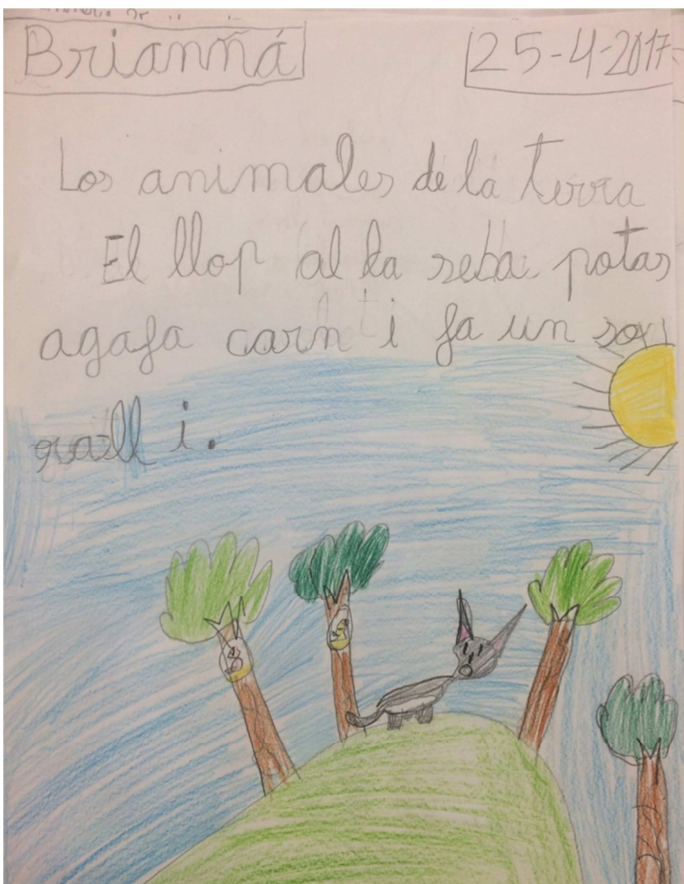 Brianná 25-4-2017
Los animales de la terra
El llop al la seba potas
agafa carn i fa un so
rall i.